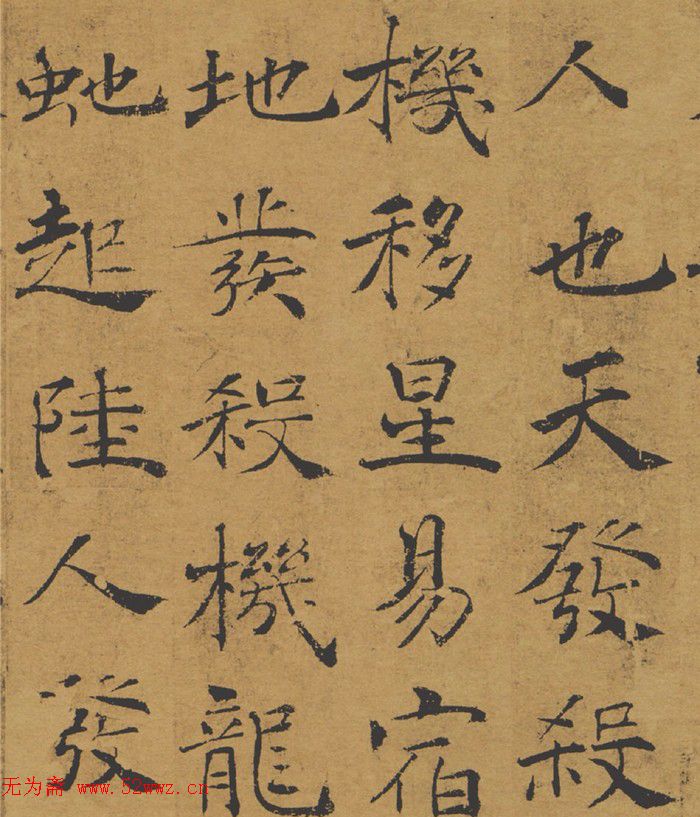 人也天發殺
機移星易宿
地發殺機龍
虵起陸人發
无为斋 www.52wwz.cn